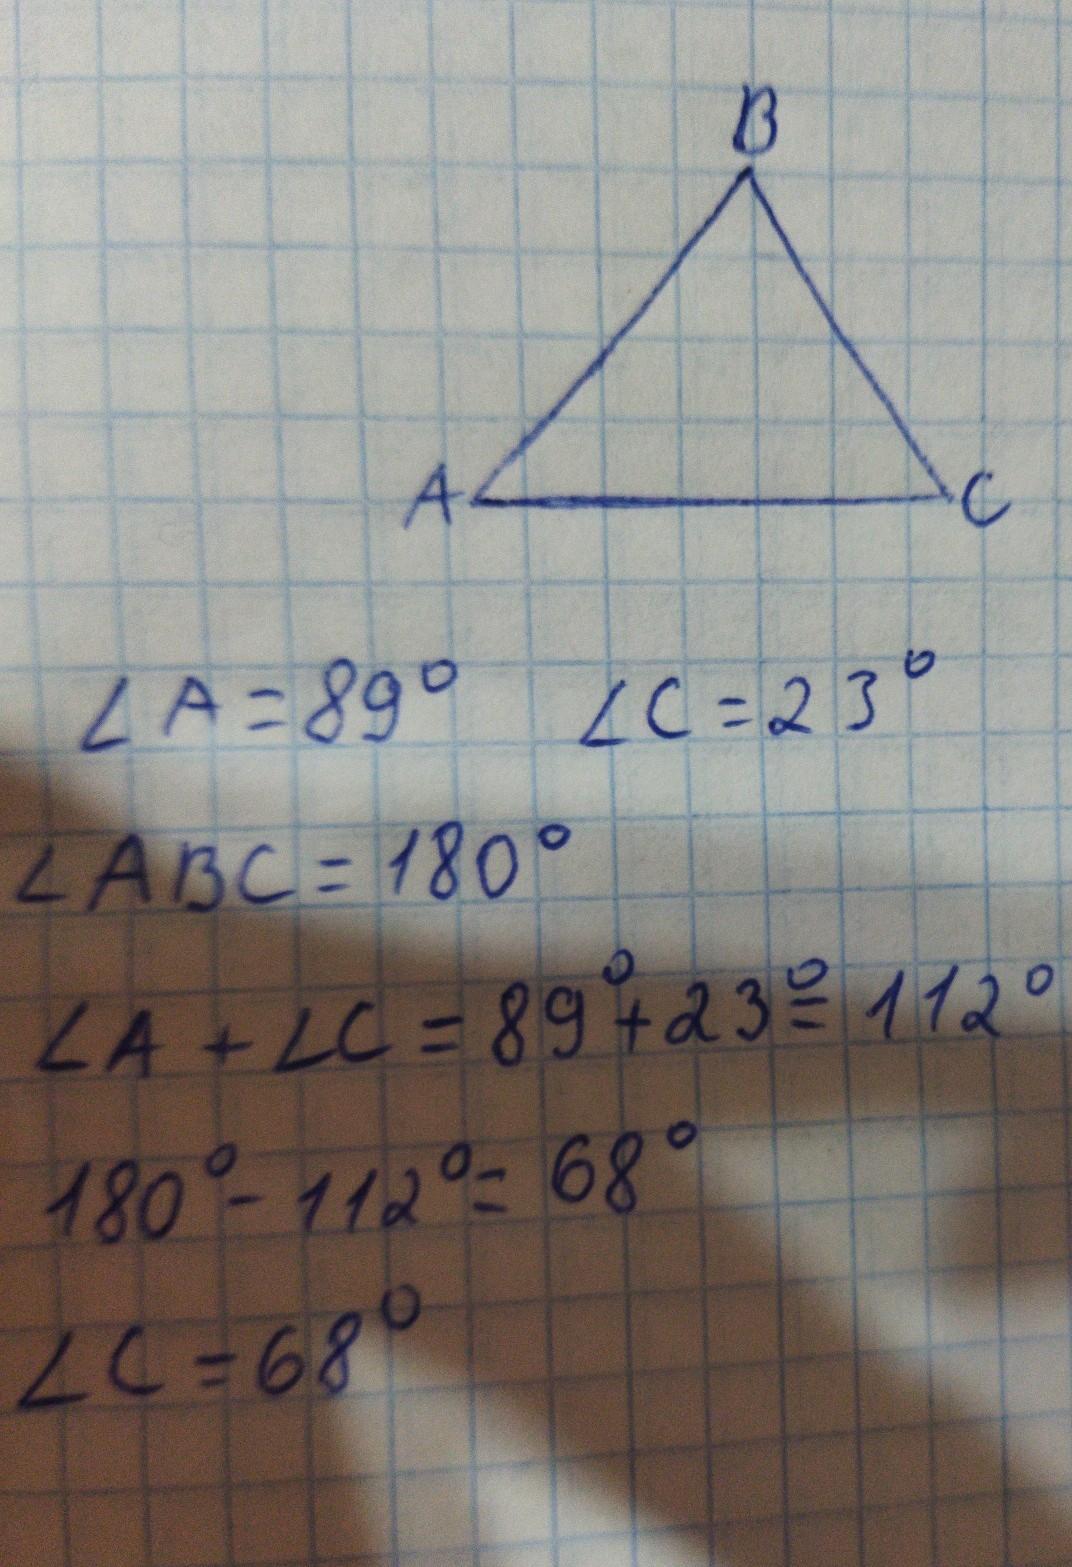 B
A C
∠A=89° ∠C=23°
∠ABC=180°
∠A+∠C=89°+23°=112°
180°-112°=68°
∠C=68°